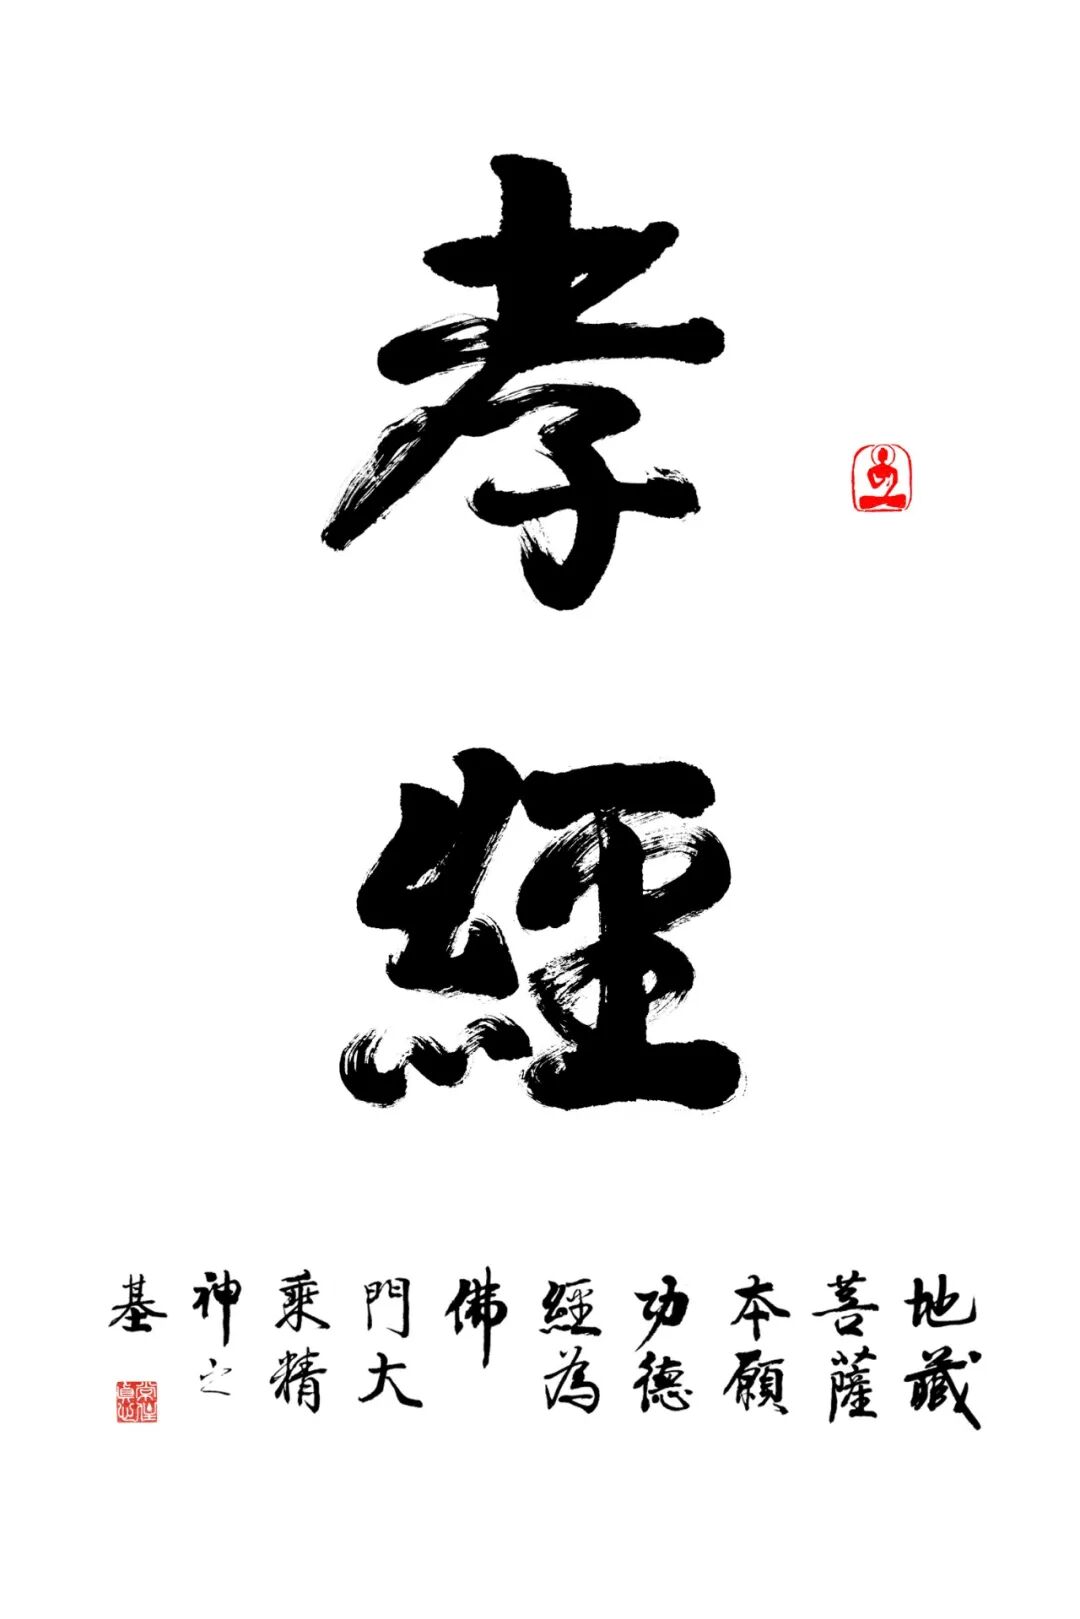 孝經
地藏
菩薩
本願
功德
經為
佛
門大
乘精
神之
基